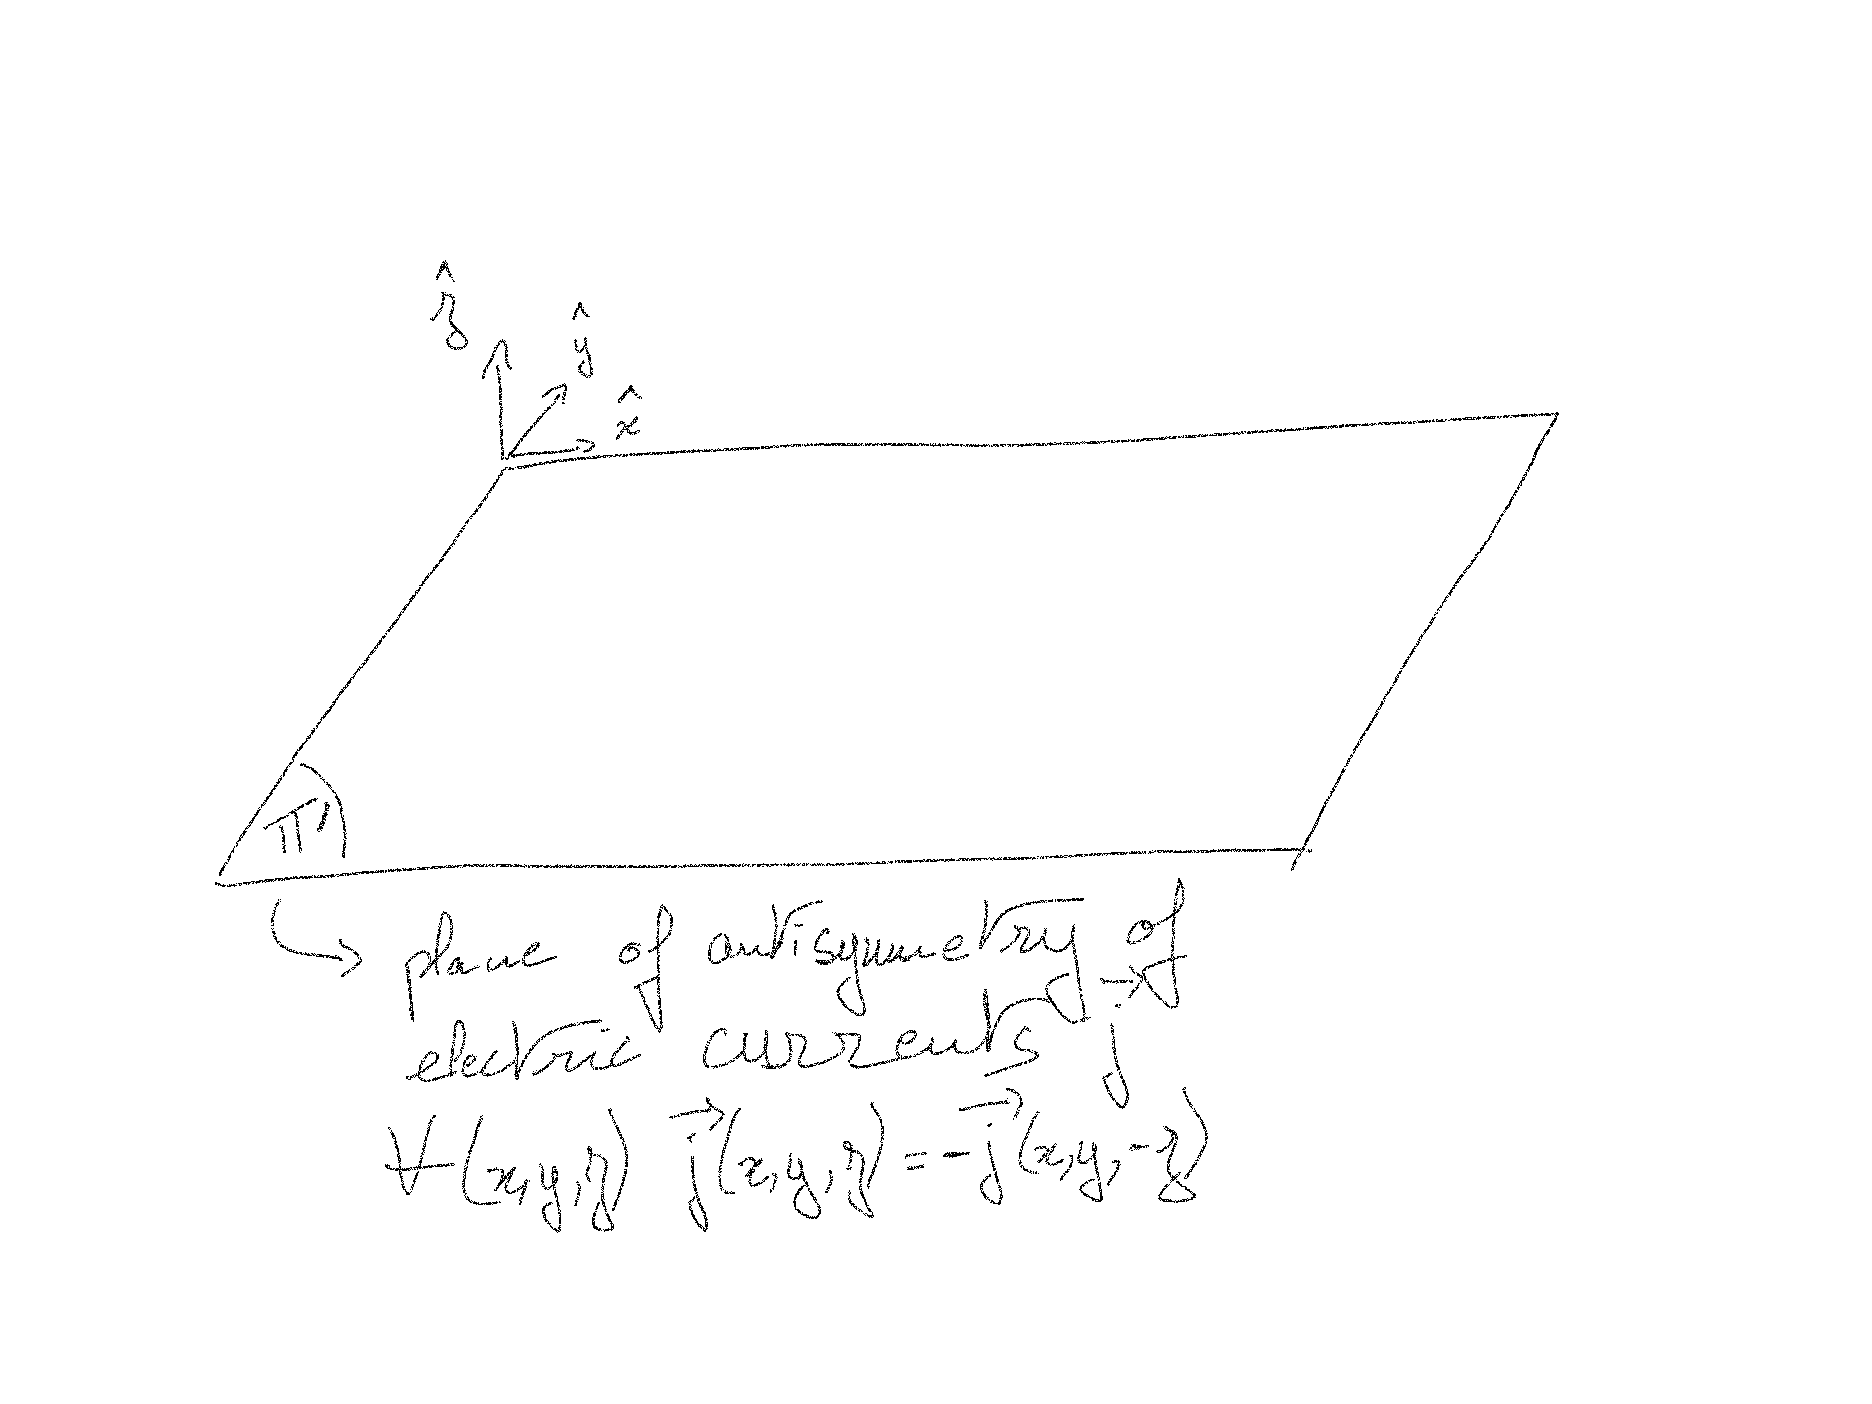 ẑ
ŷ
x̂
Π'
plane of antisymmetry of
electric currents j⃗
∀(x,y,z) j⃗(x,y,z) = -j⃗(x,y,-z)